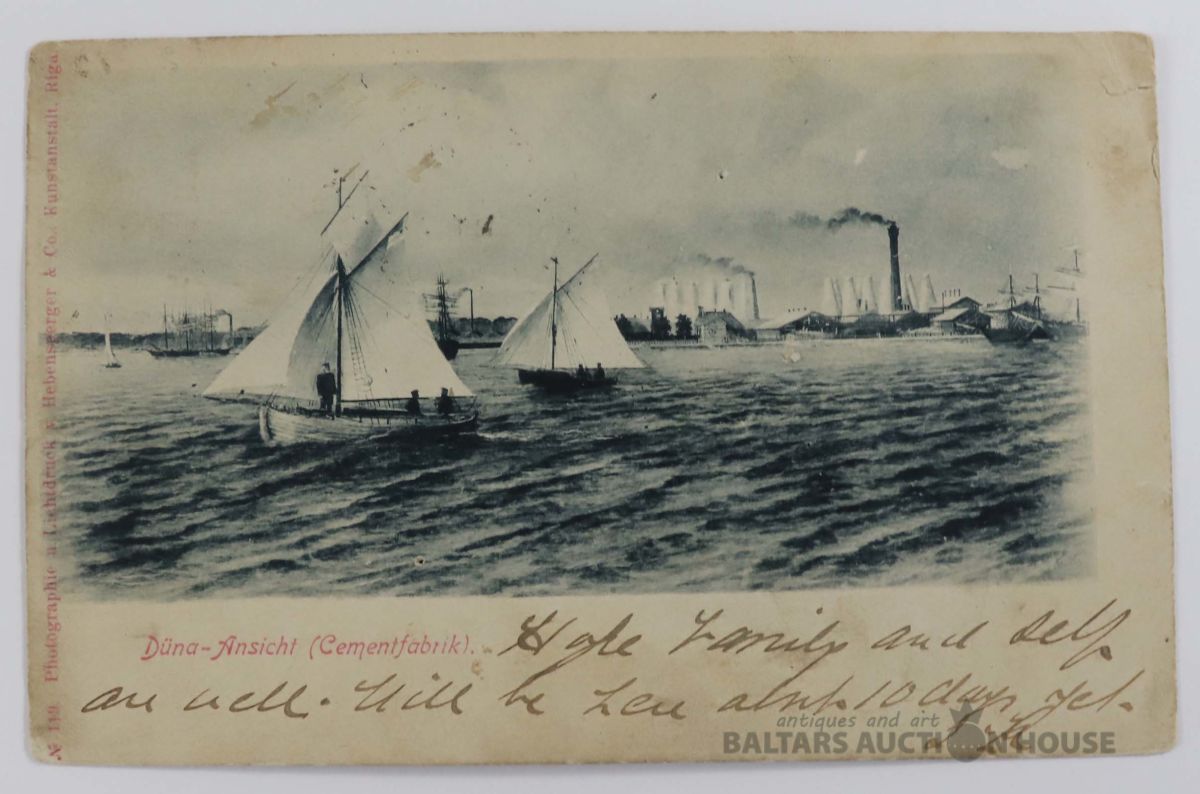 № 119. Photographie u. Lichtdruck v. Hebensperger & Co., Kunstanstalt, Riga
Düna-Ansicht (Cementfabrik).
Hope Family and self
are well. Will be here abt. 10 days yet.
antiques and art
BALTARS AUCTION HOUSE